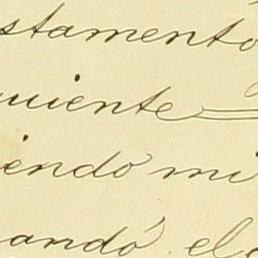 stamento
uiente
iendo mi
ando el